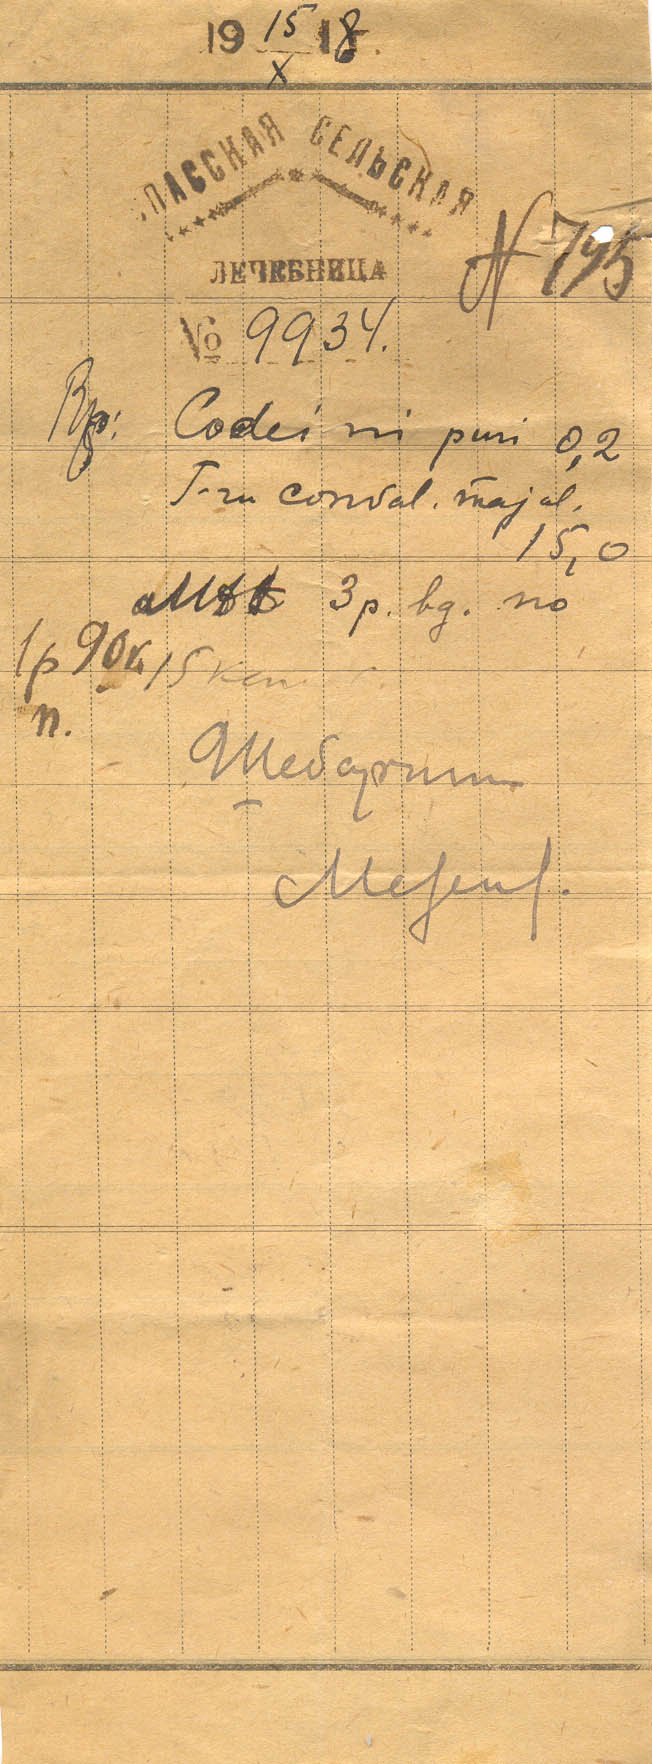 19 15/X 18.
СПАССКАЯ СЕЛЬСКАЯ
ЛЕЧЕБНИЦА
N 795
№ 9934.
Rp: Codeini puri 0,2
T-ru conval. majal.
15,0
MDS 3 р. вд. по
1р 90к 15 кап.
п.